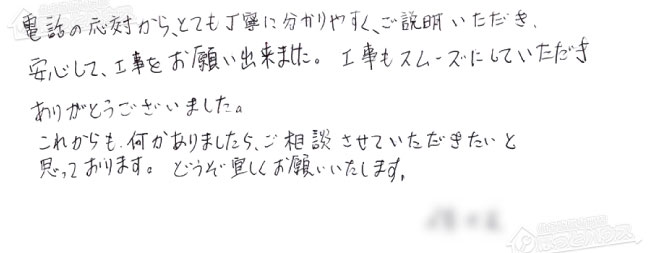 電話の応対から、とても丁寧に分かりやすく、ご説明いただき、
安心して、工事をお願い出来ました。工事もスムーズにしていただき
ありがとうございました。
これからも、何かありましたら、ご相談させていただきたいと
思っております。どうぞ宜しくお願いいたします。